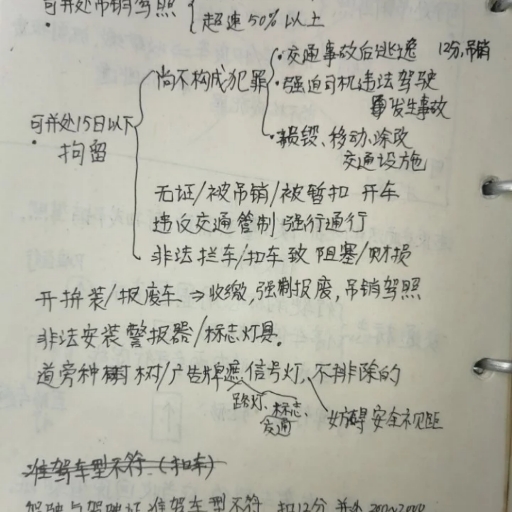 可并处吊销驾照
超速50%以上
尚不构成犯罪
·交通事故后逃逸 12分,吊销
·强迫司机违法驾驶
发生事故
·损毁、移动、涂改
交通设施
可并处15日以下
拘留
无证/被吊销/被暂扣 开车
违反交通管制 强行通行
非法拦车/扣车致 阻塞/财损
开拼装/报废车 ⇒收缴,强制报废,吊销驾照
非法安装警报器/标志灯具。
道旁种树 树/广告牌遮信号灯,不排除的
路灯,标志,
交通
妨碍安全视距
准驾车型不符 (扣车)
驾驶与驾驶证准驾车型不符 扣12分